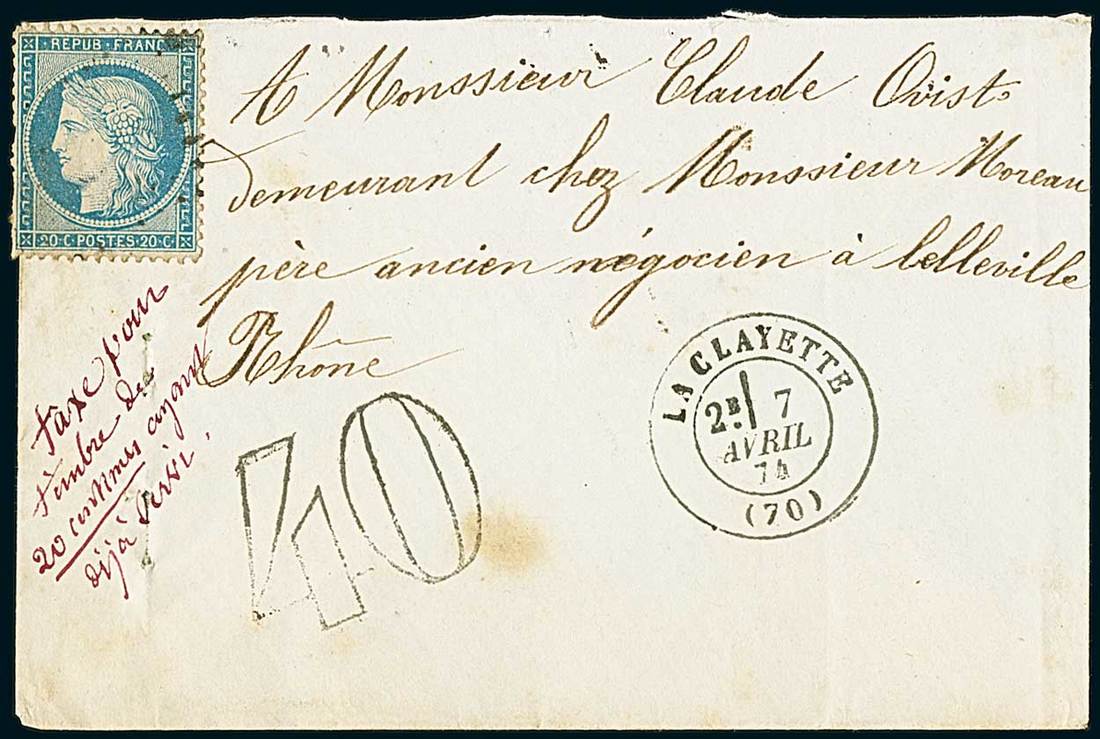 REPUB · FRANC
20·C·POSTES·20·C
A Monssieur Claude Ovist
demeurant chez Monssieur Moreau
père ancien négocien à belleville
Rhône
taxe pour
timbre de
20 centimes ayant
déjà servi.
40
LA CLAYETTE
2E 7
AVRIL
74
(70)